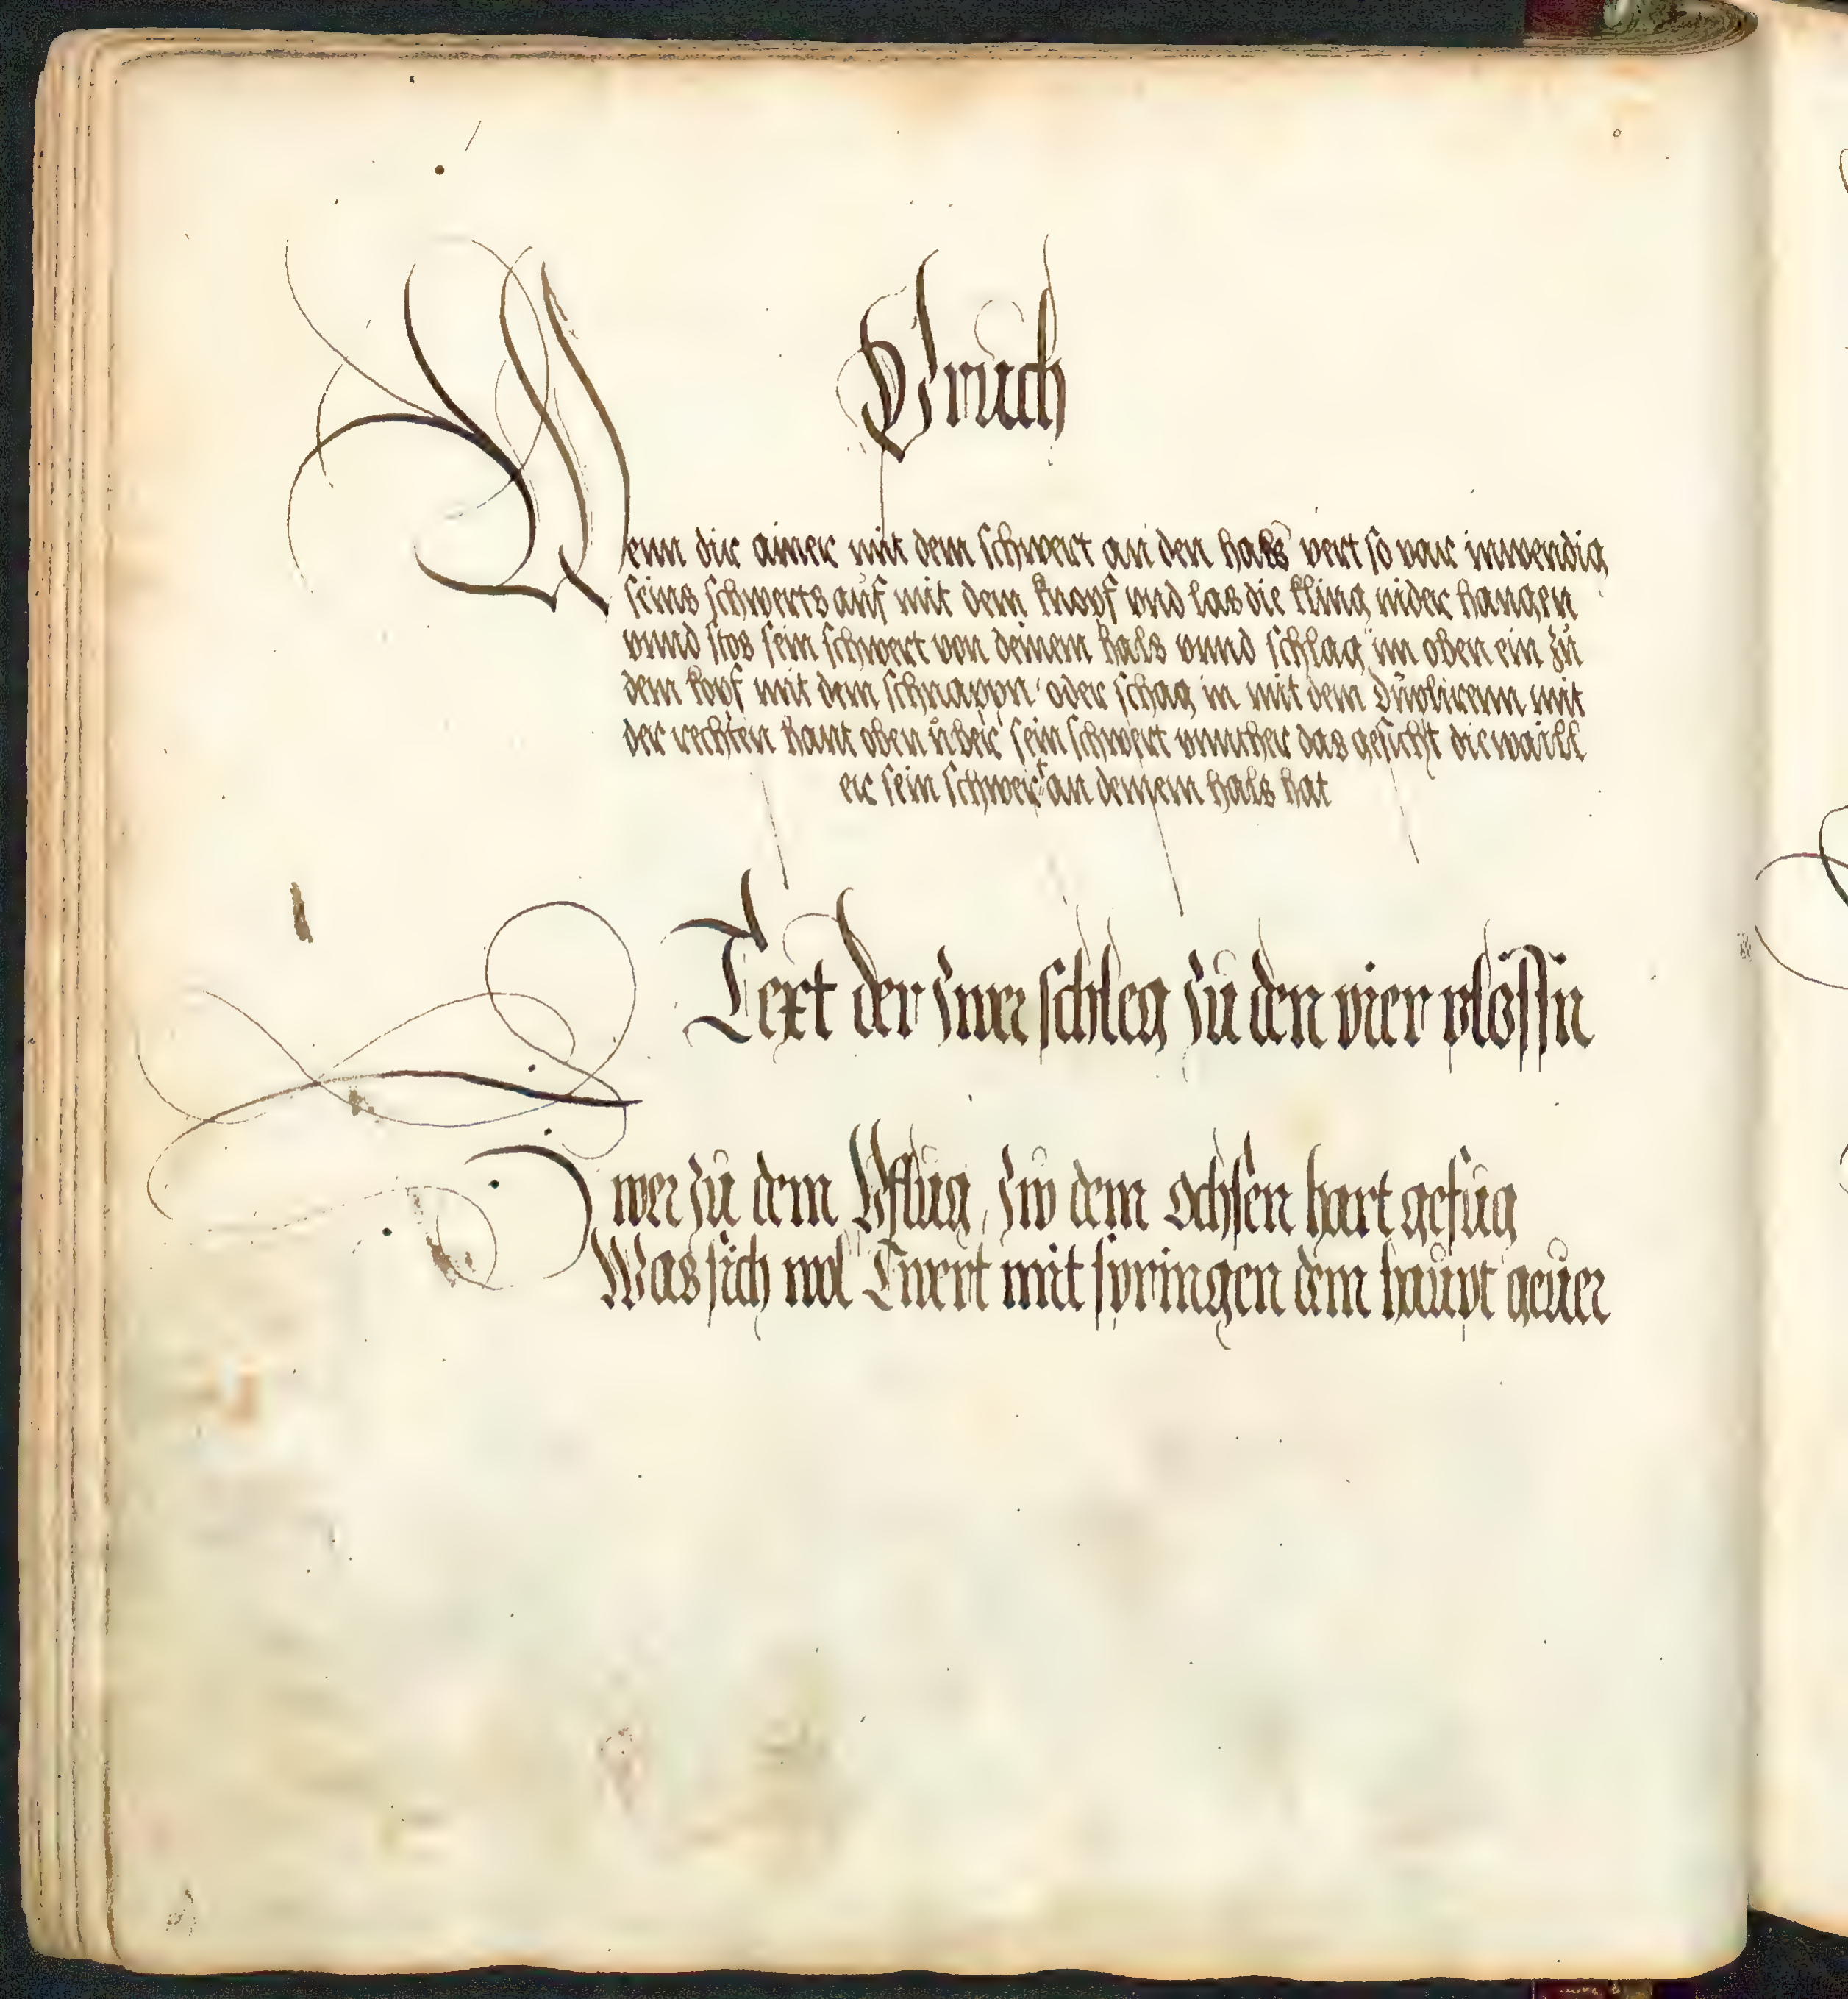 Bruch
Wenn dir ainer mit dem schwert an den hals vert so var inwendig
seins schwerts auf mit dem knopf vnd las die kling nider hangen
vnnd stos sein schwert von deinem hals vnnd schlag im oben ein zů
dem kopf mit dem schnappn oder schag in mit dem Duplirenn mit
der rechten hant oben über sein schwert vnnther das gesicht diewaill
er sein schwert an deinem hals hat
Text der zwer schleg zů den vier plössn
Zwer zů dem Pflůg, zw dem ochsen hart gefůg
Was sich wol Twert mit springen dem haůpt geůer